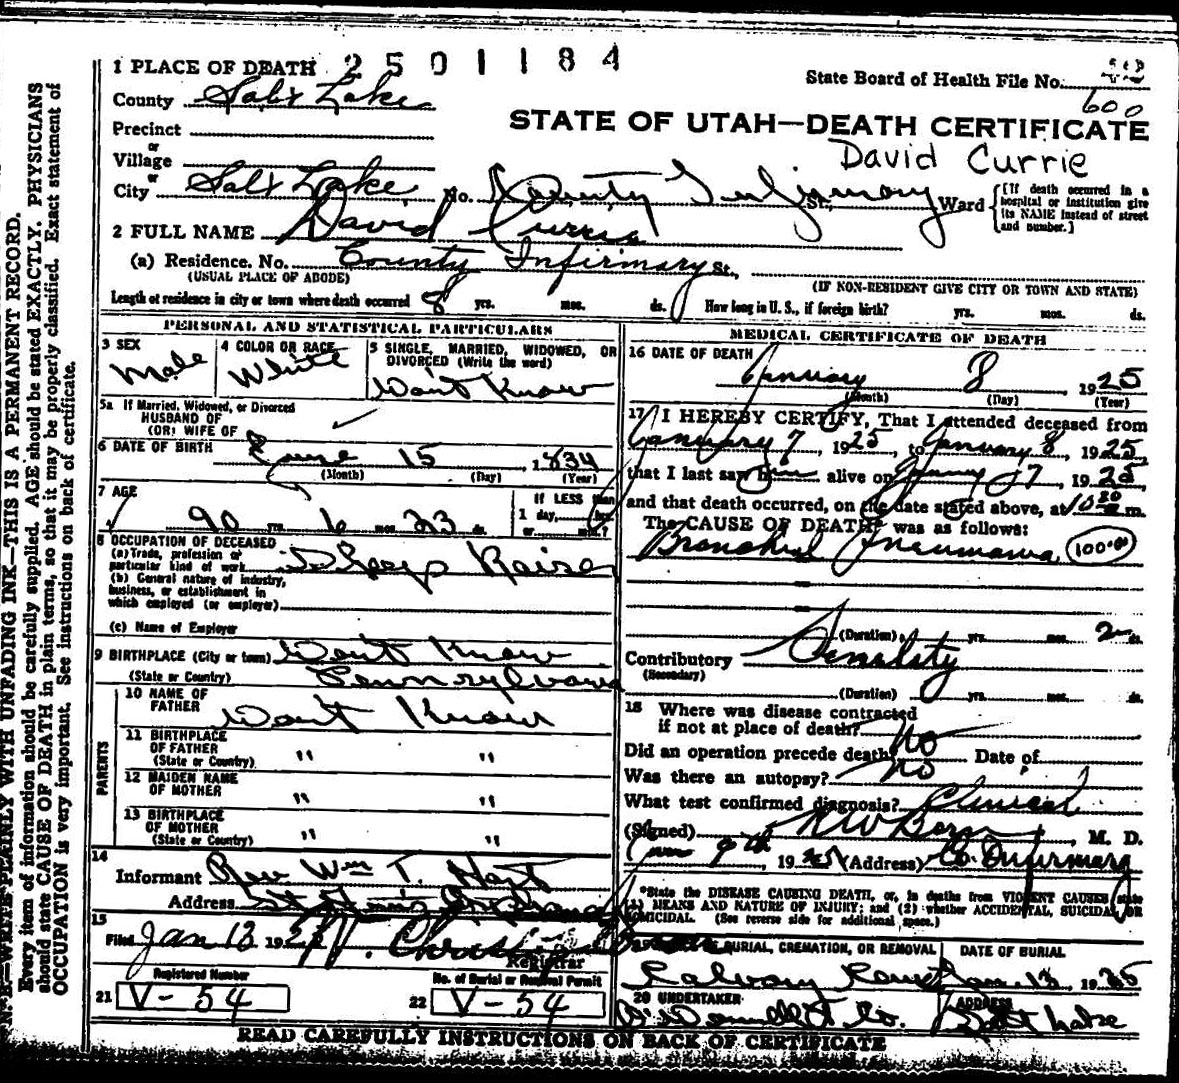 1 PLACE OF DEATH 2501184
State Board of Health File No.
600
County Salt Lake
STATE OF UTAH—DEATH CERTIFICATE
Precinct
or
Village
David Currie
or
City Salt Lake No. County Infirmary St., Ward
[If death occurred in a hospital or institution give its NAME instead of street and number.]
2 FULL NAME David Currie
(a) Residence. No. County Infirmary St.,
(USUAL PLACE OF ABODE) (IF NON-RESIDENT GIVE CITY OR TOWN AND STATE)
Length of residence in city or town where death occurred 8 yrs. mos. ds. How long in U. S., if foreign birth? yrs. mos. ds.
PERSONAL AND STATISTICAL PARTICULARS
3 SEX Male
4 COLOR OR RACE White
5 SINGLE, MARRIED, WIDOWED, OR DIVORCED (Write the word)
Don't Know
5a If Married, Widowed, or Divorced
HUSBAND OF
(OR) WIFE OF
6 DATE OF BIRTH June 15, 1834
(Month) (Day) (Year)
7 AGE
90 yrs. 6 mos. 23 ds.
If LESS than
1 day, hrs.
or min.?
8 OCCUPATION OF DECEASED
(a) Trade, profession or
particular kind of work Sheep Raiser
(b) General nature of industry,
business, or establishment in
which employed (or employer)
(c) Name of Employer
9 BIRTHPLACE (City or town) Don't Know
(State or Country) Pennsylvania
PARENTS
10 NAME OF
FATHER Don't Know
11 BIRTHPLACE
OF FATHER
(State or Country) " "
12 MAIDEN NAME
OF MOTHER " "
13 BIRTHPLACE
OF MOTHER
(State or Country) " "
14
Informant Rev Wm T.
Address
15
Filed Jan 13 192
Registrar
Registered Number
No. of Burial or Removal Permit
21 V-54
22 V-54
MEDICAL CERTIFICATE OF DEATH
16 DATE OF DEATH
January 8 1925
(Month) (Day) (Year)
17 I HEREBY CERTIFY, That I attended deceased from
January 7, 1925, to January 8, 1925,
that I last saw him alive on January 7, 1925,
and that death occurred, on the date stated above, at 10 20 m.
The CAUSE OF DEATH* was as follows:
Bronchial Pneumonia 100.a
(Duration) yrs. mos. 2 ds.
Contributory Senility
(Secondary)
(Duration) yrs. mos. ds.
18 Where was disease contracted
if not at place of death?
Did an operation precede death no Date of
Was there an autopsy? no
What test confirmed diagnosis? Clinical
(Signed) M. D.
Jan 9th, 1925 (Address) Co. Infirmary
*State the DISEASE CAUSING DEATH, or, in deaths from VIOLENT CAUSES state
(1) MEANS AND NATURE OF INJURY; and (2) whether ACCIDENTAL, SUICIDAL, OR
HOMICIDAL. (See reverse side for additional space.)
BURIAL, CREMATION, OR REMOVAL
DATE OF BURIAL
Jan. 13, 1925
20 UNDERTAKER
ADDRESS
Co. Salt Lake
READ CAREFULLY INSTRUCTIONS ON BACK OF CERTIFICATE
N. B.—WRITE PLAINLY WITH UNFADING INK—THIS IS A PERMANENT RECORD.
Every item of information should be carefully supplied. AGE should be stated EXACTLY. PHYSICIANS
should state CAUSE OF DEATH in plain terms, so that it may be properly classified. Exact statement of
OCCUPATION is very important. See instructions on back of certificate.